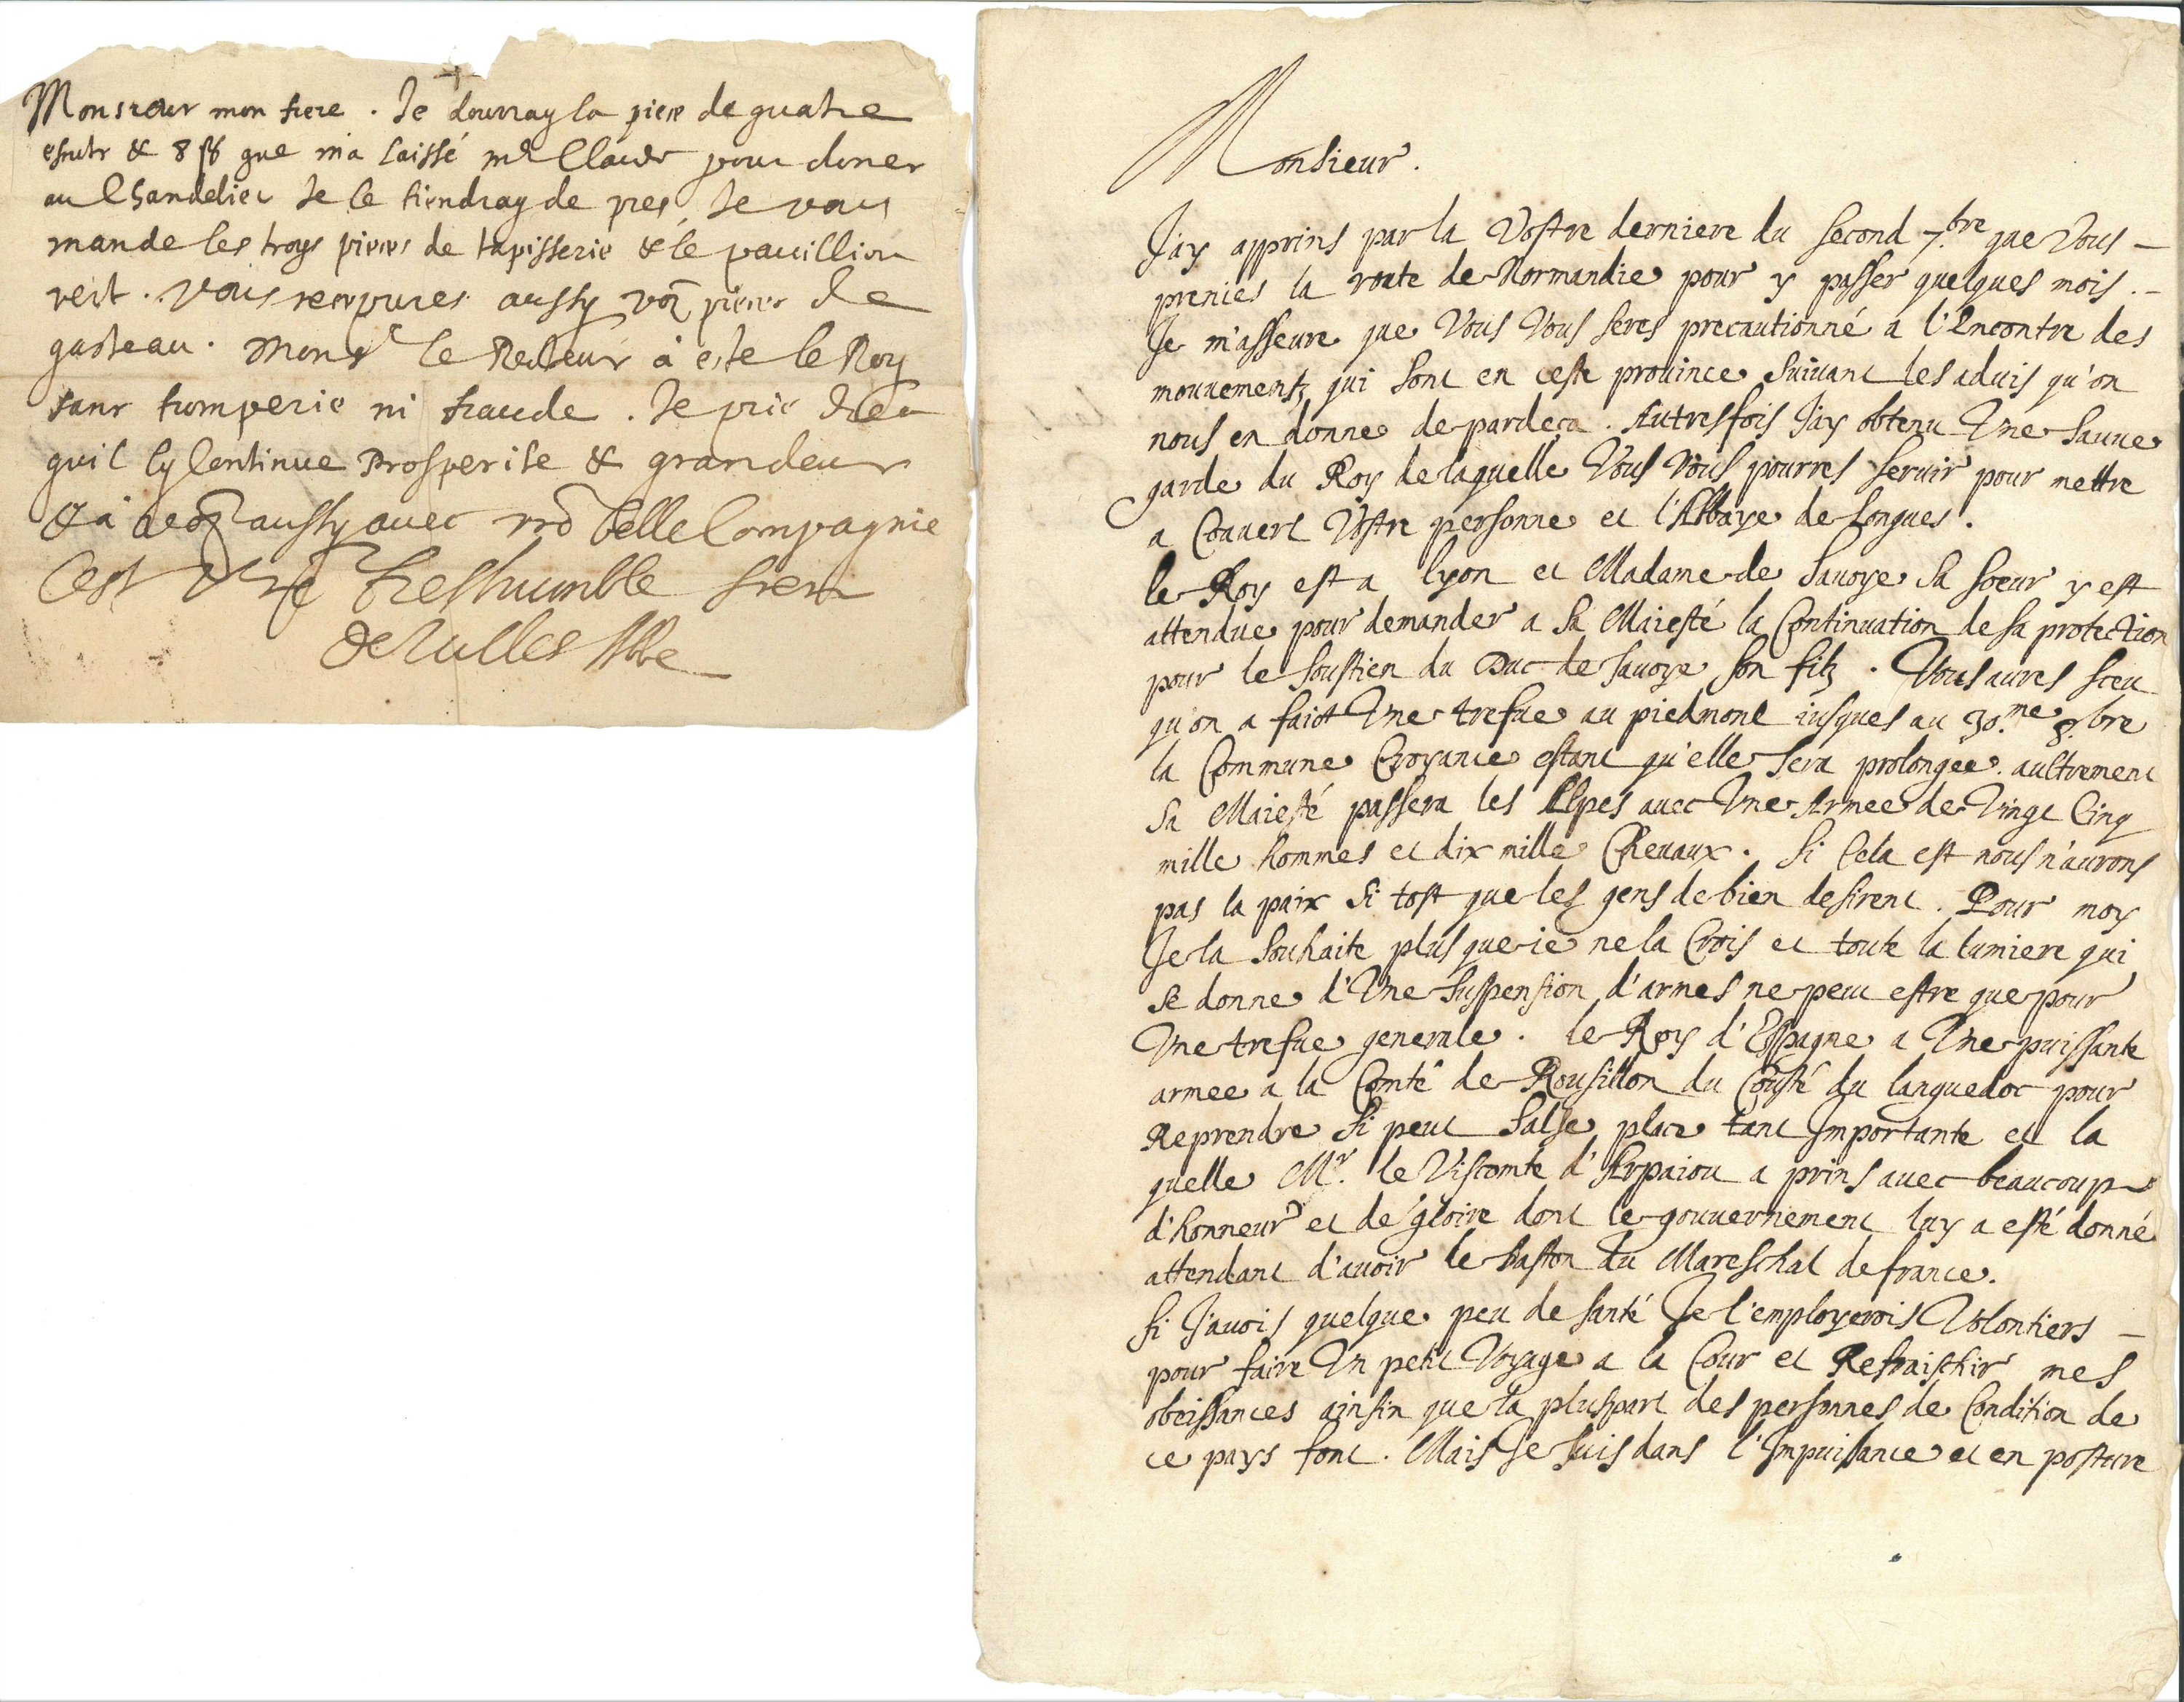 Monsieur mon frere. Je donnay la piece de quatre
escutz & 8 ß que m'a laissé mr Claude pour doner
au Chandelier Je le tiendray de pres, Je vous
mande les troys pieces de tapisserie & le pavillion
vert. Vous recepvres aussy voz pieces de
gasteau. Monsr le Recteur à esté le Roy
sans tromperie ni fraude. Je prie Dieu
quil ly Continue Prosperite & grandeur
& à aussy avec belle Compagnie
Cest treshumble
Abbe
Monsieur.
J'ay apprins par la Vostre derniere du second 7.bre que Vous –
prenies la route de Normandie pour y passer quelques mois. –
Je m'asseure que Vous Vous seres precautionné a l'Encontre des
mouvementz qui sont en ceste province suivant les advis qu'on
nous en donne de pardeça. Autresfois J'ay obtenu Une Sauve
garde du Roy de laquelle Vous Vous pourres servir pour mettre
a Couvert Vostre personne et l'Abbaye de Longues.
le Roy est a lyon et Madame de Savoye Sa soeur y est
attendue pour demander a Sa Maiesté la Continuation de sa protection
pour le soustien du Duc de Savoye son filz. Vous aures sceu
qu'on a faict Une trefue au piedmont iusques au 30.me 8.bre
la Commune Croyance estant qu'elle sera prolongée. aultrement
Sa Maiesté passera les Alpes avec Une Armee de Vingt Cinq
mille hommes et dix mille Chevaux. Si Cela est nous n'aurons
pas la paix si tost que les gens de bien desirent. Pour moy
Je la souhaite plus que ie ne la Crois et toute la lumiere qui
se donne d'Une suspension d'armes ne peut estre que pour
Une trefue generale. le Roy d'Espagne a Une puissante
armee a la Comté de Rousillon du Cousté du languedoc pour
Reprendre si peut Salse place tant Importante et la
quelle Mr. le Viscomte d'Arpaiou a prins avec beaucoup
d'honneur et de gloire dont le gouvernement luy a esté donné
attendant d'avoir le baston du Mareschal de france.
Si J'avois quelque peu de santé Je l'employerois Volontiers –
pour faire Un petit Voyage a la Cour et Refraischir mes
obeissances ainsin que la pluspart des personnes de Condition de
ce pays font. Mais Je suis dans l'Impuissance et en posture